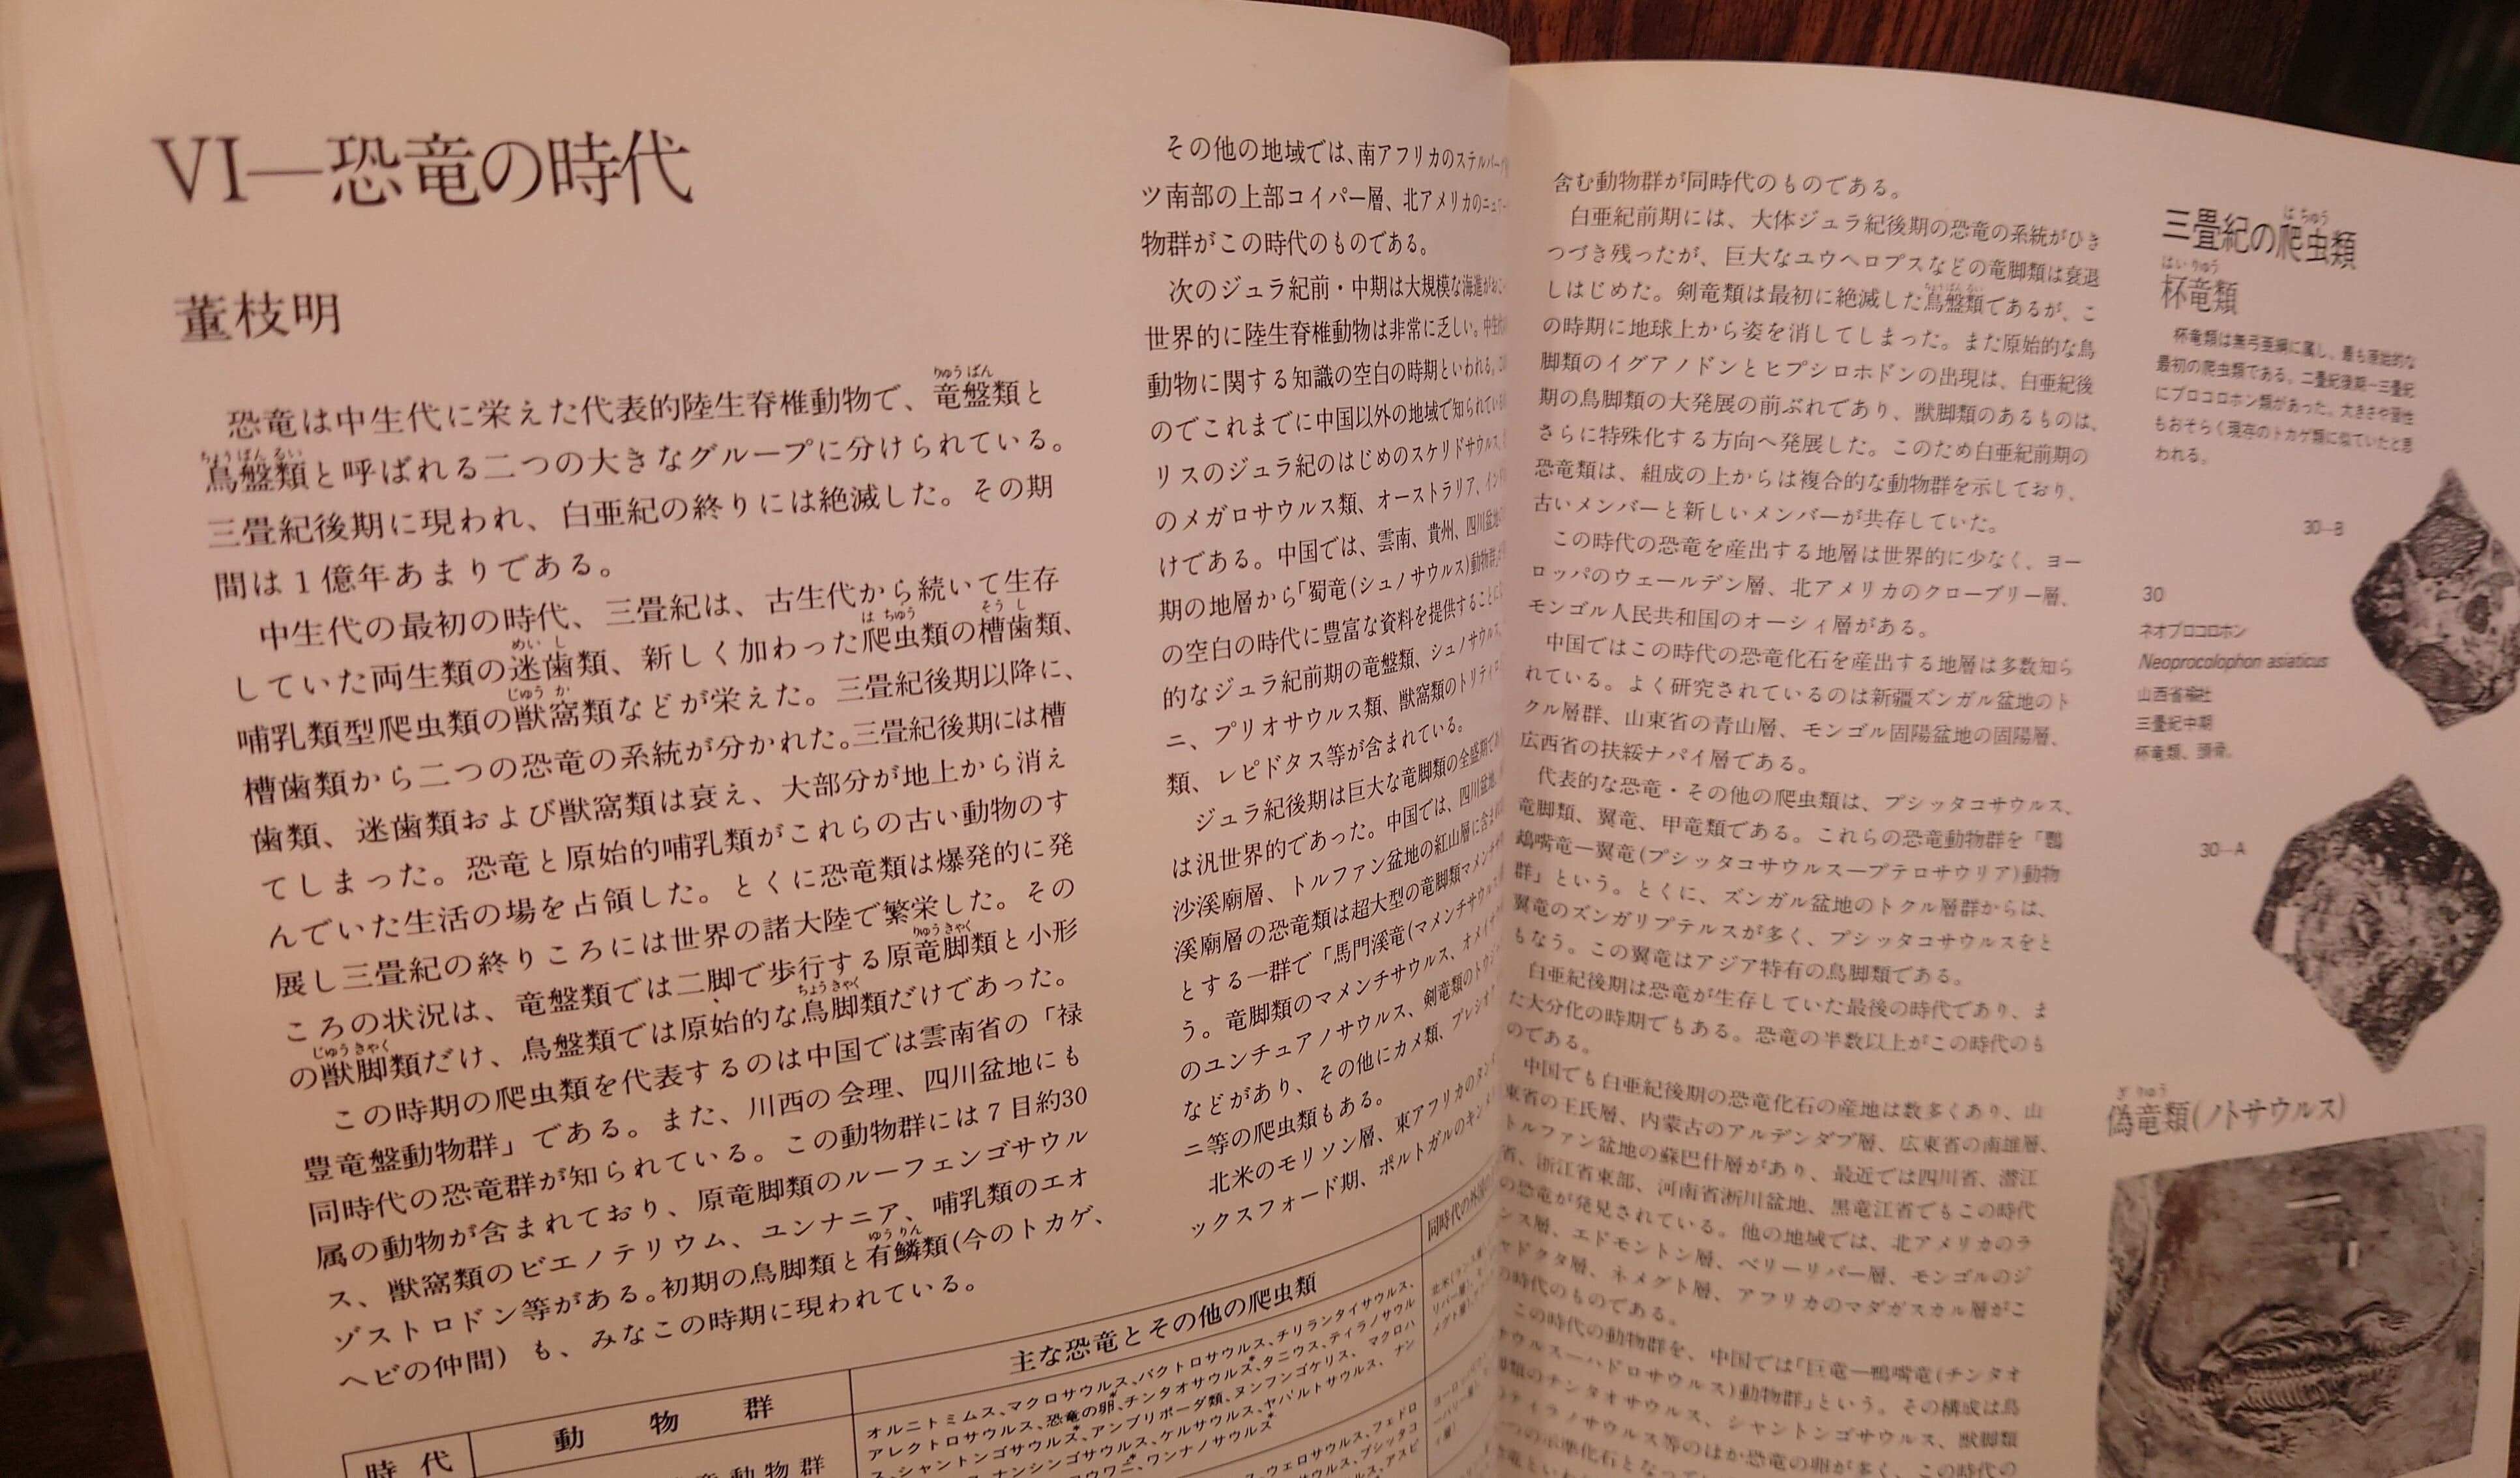 VI—恐竜の時代
董枝明
恐竜は中生代に栄えた代表的陸生脊椎動物で、竜盤類と
りゅう ばん
鳥盤類と呼ばれる二つの大きなグループに分けられている。
ちょう ばん るい
三畳紀後期に現われ、白亜紀の終りには絶滅した。その期
間は1億年あまりである。
中生代の最初の時代、三畳紀は、古生代から続いて生存
していた両生類の迷歯類、新しく加わった爬虫類の槽歯類、
めい し
は ちゅう
そう し
哺乳類型爬虫類の獣窩類などが栄えた。三畳紀後期以降に、
じゅう か
槽歯類から二つの恐竜の系統が分かれた。三畳紀後期には槽
歯類、迷歯類および獣窩類は衰え、大部分が地上から消え
てしまった。恐竜と原始的哺乳類がこれらの古い動物のす
んでいた生活の場を占領した。とくに恐竜類は爆発的に発
展し三畳紀の終りころには世界の諸大陸で繁栄した。その
ころの状況は、竜盤類では二脚で歩行する原竜脚類と小形
りゅう きゃく
の獣脚類だけ、鳥盤類では原始的な鳥脚類だけであった。
じゅう きゃく
ちょう きゃく
この時期の爬虫類を代表するのは中国では雲南省の「禄
豊竜盤動物群」である。また、川西の会理、四川盆地にも
同時代の恐竜群が知られている。この動物群には7目約30
属の動物が含まれており、原竜脚類のルーフェンゴサウル
ス、獣窩類のビエノテリウム、ユンナニア、哺乳類のエオ
ゾストロドン等がある。初期の鳥脚類と有鱗類(今のトカゲ、
ゆう りん
ヘビの仲間)も、みなこの時期に現われている。
その他の地域では、南アフリカのステル
ツ南部の上部コイパー層、北アメリカのニュ
物群がこの時代のものである。
次のジュラ紀前・中期は大規模な海進が
世界的に陸生脊椎動物は非常に乏しい。
動物に関する知識の空白の時期といわれる。
のでこれまでに中国以外の地域で知られている
リスのジュラ紀のはじめのスケリドサウルス、
のメガロサウルス類、オーストラリア、イン
けである。中国では、雲南、貴州、四川盆地
期の地層から「蜀竜(シュノサウルス)動物群」
の空白の時代に豊富な資料を提供すること
的なジュラ紀前期の竜盤類、シュノサウルス、
ニ、プリオサウルス類、獣窩類のトリティロ
類、レピドタス等が含まれている。
ジュラ紀後期は巨大な竜脚類の全盛期で
は汎世界的であった。中国では、四川盆地、
沙溪廟層、トルファン盆地の紅山層に含ま
溪廟層の恐竜類は超大型の竜脚類マメンチ
とする一群で「馬門溪竜(マメンチサウルス
う。竜脚類のマメンチサウルス、オメイサ
のユンチュアノサウルス、剣竜類のトウ
などがあり、その他にカメ類、プレシオ
ニ等の爬虫類もある。
北米のモリソン層、東アフリカのタン
ックスフォード期、ポルトガルのキンメ
時代
動物群
主な恐竜とその他の爬虫類
同時代の外国の
オルニトミムス、マクロサウルス、バクトロサウルス、チリランタイサウルス、
アレクトロサウルス、恐竜の卵、チンタオサウルス、タニウス、ティラノサウル
ス、シャントンゴサウルス、アンブリポーダ類、ヌンフンゴケリス、マクロハ
ナンシンゴサウルス、ケルサウルス、ヤパルトサウルス、ナン
ワンナノサウルス
動物群
含む動物群が同時代のものである。
白亜紀前期には、大体ジュラ紀後期の恐竜の系統がひき
つづき残ったが、巨大なユウヘロプスなどの竜脚類は衰退
しはじめた。剣竜類は最初に絶滅した鳥盤類であるが、こ
ちょう ばん るい
の時期に地球上から姿を消してしまった。また原始的な鳥
脚類のイグアノドンとヒプシロホドンの出現は、白亜紀後
期の鳥脚類の大発展の前ぶれであり、獣脚類のあるものは、
さらに特殊化する方向へ発展した。このため白亜紀前期の
恐竜類は、組成の上からは複合的な動物群を示しており、
古いメンバーと新しいメンバーが共存していた。
この時代の恐竜を産出する地層は世界的に少なく、ヨー
ロッパのウェールデン層、北アメリカのクローブリー層、
モンゴル人民共和国のオーシィ層がある。
中国ではこの時代の恐竜化石を産出する地層は多数知ら
れている。よく研究されているのは新疆ズンガル盆地のト
クル層群、山東省の青山層、モンゴル固陽盆地の固陽層、
広西省の扶綏ナパイ層である。
代表的な恐竜・その他の爬虫類は、プシッタコサウルス、
竜脚類、翼竜、甲竜類である。これらの恐竜動物群を「鸚
鵡嘴竜―翼竜(プシッタコサウルスープテロサウリア)動物
群」という。とくに、ズンガル盆地のトクル層群からは、
翼竜のズンガリプテルスが多く、プシッタコサウルスをと
もなう。この翼竜はアジア特有の鳥脚類である。
白亜紀後期は恐竜が生存していた最後の時代であり、ま
た大分化の時期でもある。恐竜の半数以上がこの時代のも
のである。
中国でも白亜紀後期の恐竜化石の産地は数多くあり、山
東省の王氏層、内蒙古のアルデンダブ層、広東省の南雄層、
トルファン盆地の蘇巴什層があり、最近では四川省、潜江
省、浙江省東部、河南省淅川盆地、黒竜江省でもこの時代
の恐竜が発見されている。他の地域では、北アメリカのラ
ンス層、エドモントン層、ベリーリバー層、モンゴルのジ
ャドクタ層、ネメグト層、アフリカのマダガスカル層がこ
の時代のものである。
この時代の動物群を、中国では「巨竜―鴨嘴竜(チンタオ
サウルス―ハドロサウルス)動物群」という。その構成は鳥
脚類のチンタオサウルス、シャントンゴサウルス、獣脚類
のティラノサウルス等のほか恐竜の卵が多く、この時代の
三畳紀の爬虫類
は ちゅう
杯竜類
はい りゅう
杯竜類は無弓亜綱に属し、最も原始的な
最初の爬虫類である。二畳紀後期―三畳紀
にプロコロホン類があった。大きさや習性
もおそらく現存のトカゲ類に似ていたと思
われる。
30—B
30
ネオプロコロホン
Neoprocolophon asiaticus
山西省楡社
三畳紀中期
杯竜類、頭骨。
30—A
偽竜類(ノトサウルス)
ぎ りゅう